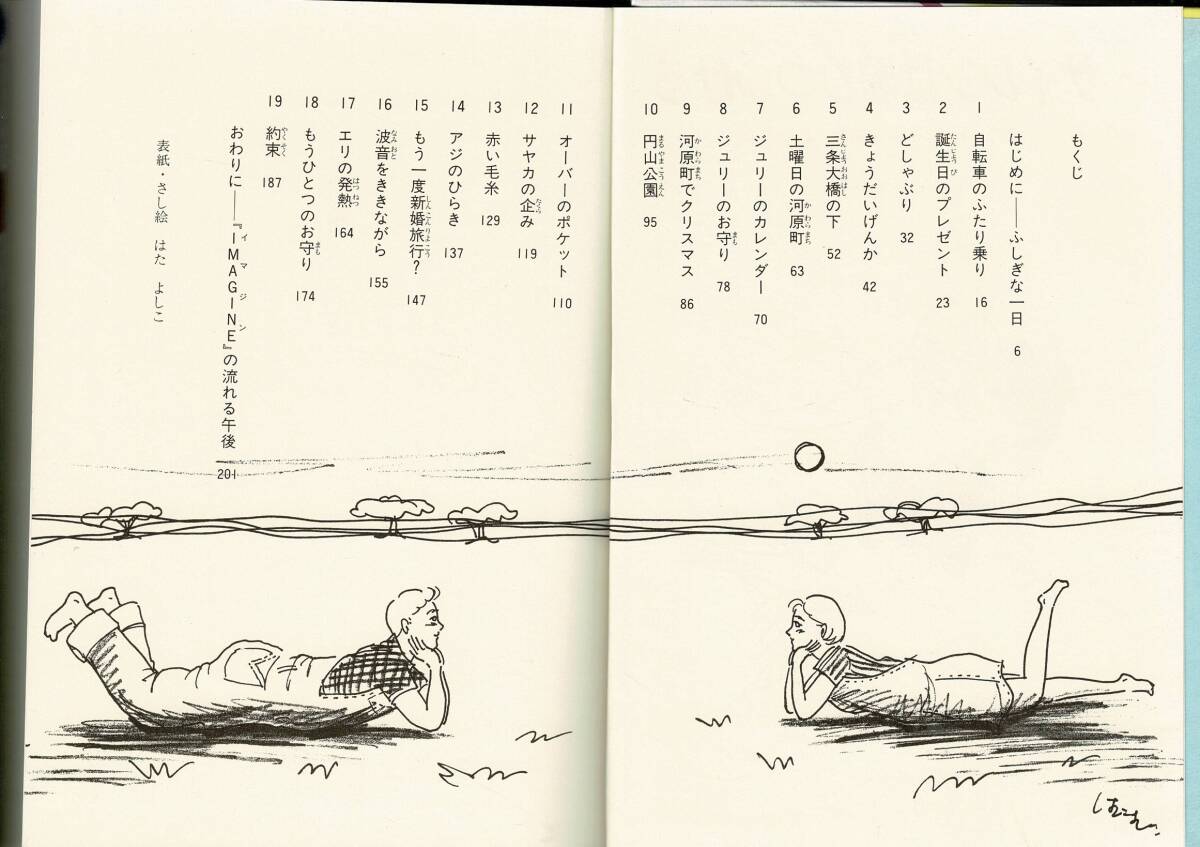 もくじ
はじめに──ふしぎな一日 6
1 自転車のふたり乗り 16
2 誕生日のプレゼント 23
3 どしゃぶり 32
4 きょうだいげんか 42
5 三条大橋の下 52
6 土曜日の河原町 63
7 ジュリーのカレンダー 70
8 ジュリーのお守り 78
9 河原町でクリスマス 86
10 円山公園 95
11 オーバーのポケット 110
12 サヤカの企み 119
13 赤い毛糸 129
14 アジのひらき 137
15 もう一度新婚旅行? 147
16 波音をききながら 155
17 エリの発熱 164
18 もうひとつのお守り 174
19 約束 187
おわりに──『IMAGINE』の流れる午後 201
表紙・さし絵 はた よしこ